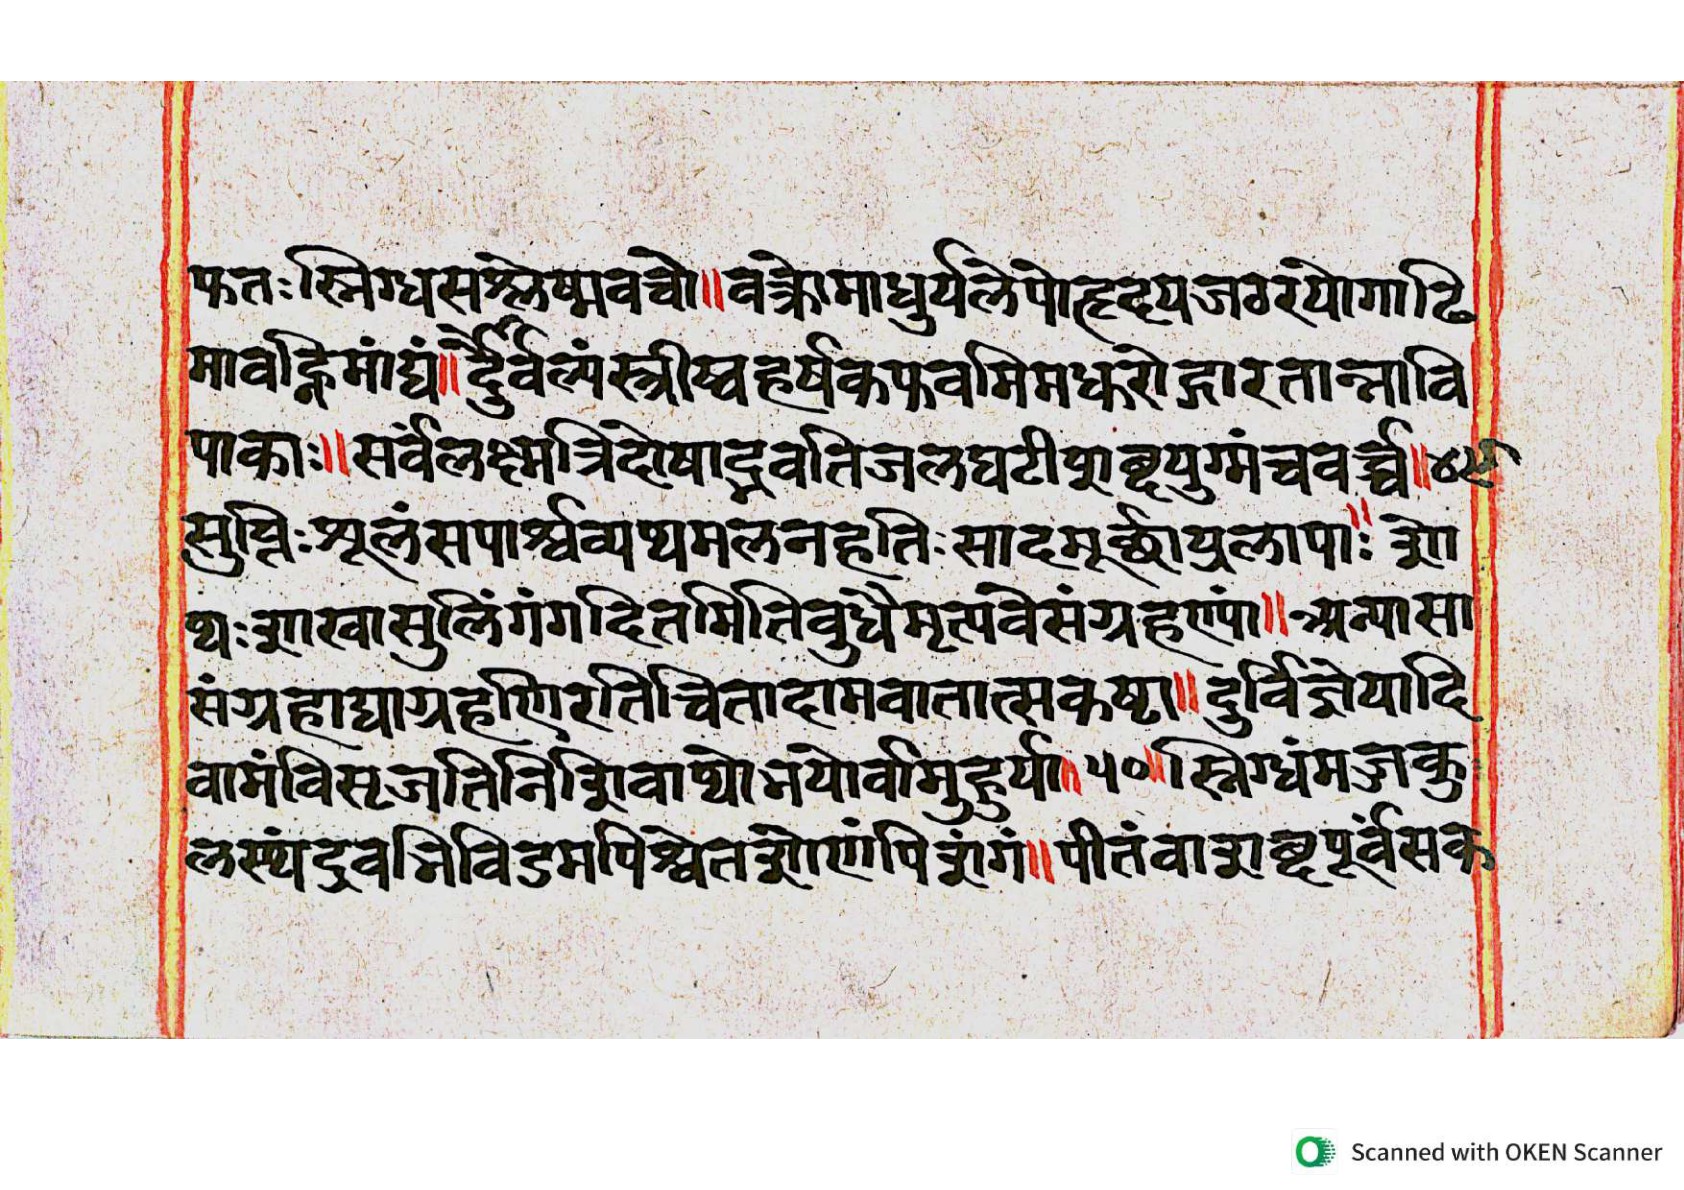 फतःस्निग्धसश्लेष्मवर्चो॥वक्रोमाधुर्यलेपोहृदयजठरयोगाढि
मावह्निमांद्यं॥दुौर्वल्यंस्त्रीष्वहर्षकफवमिमधुरोद्गारतान्नावि
पाकाः॥सर्वंलक्ष्मत्रिदोषाद्द्रवतिजलघटीशब्दयुग्मंचवर्च्च॥४९
सुप्तिःशूलंसपार्श्वव्यथमलनहतिःसादमूर्छाप्रलापाः॥शो
थःशाखासुलिंगंगदितमितिवुधैमृत्यवेसंग्रहण्यां॥अन्यासा
संग्रहाद्याग्रहणिरतिचितादामवातात्सकष्टा॥दुर्विज्ञेयादि
वामंविसृजतिनिशिवाथोभयोर्वामुहुर्या॥५०॥स्निग्धंमजकु
लस्थंद्रवमिविडमपिश्वेतशोणंपिशंगं॥पीतंवाशब्दपूर्वंसक
Scanned with OKEN Scanner